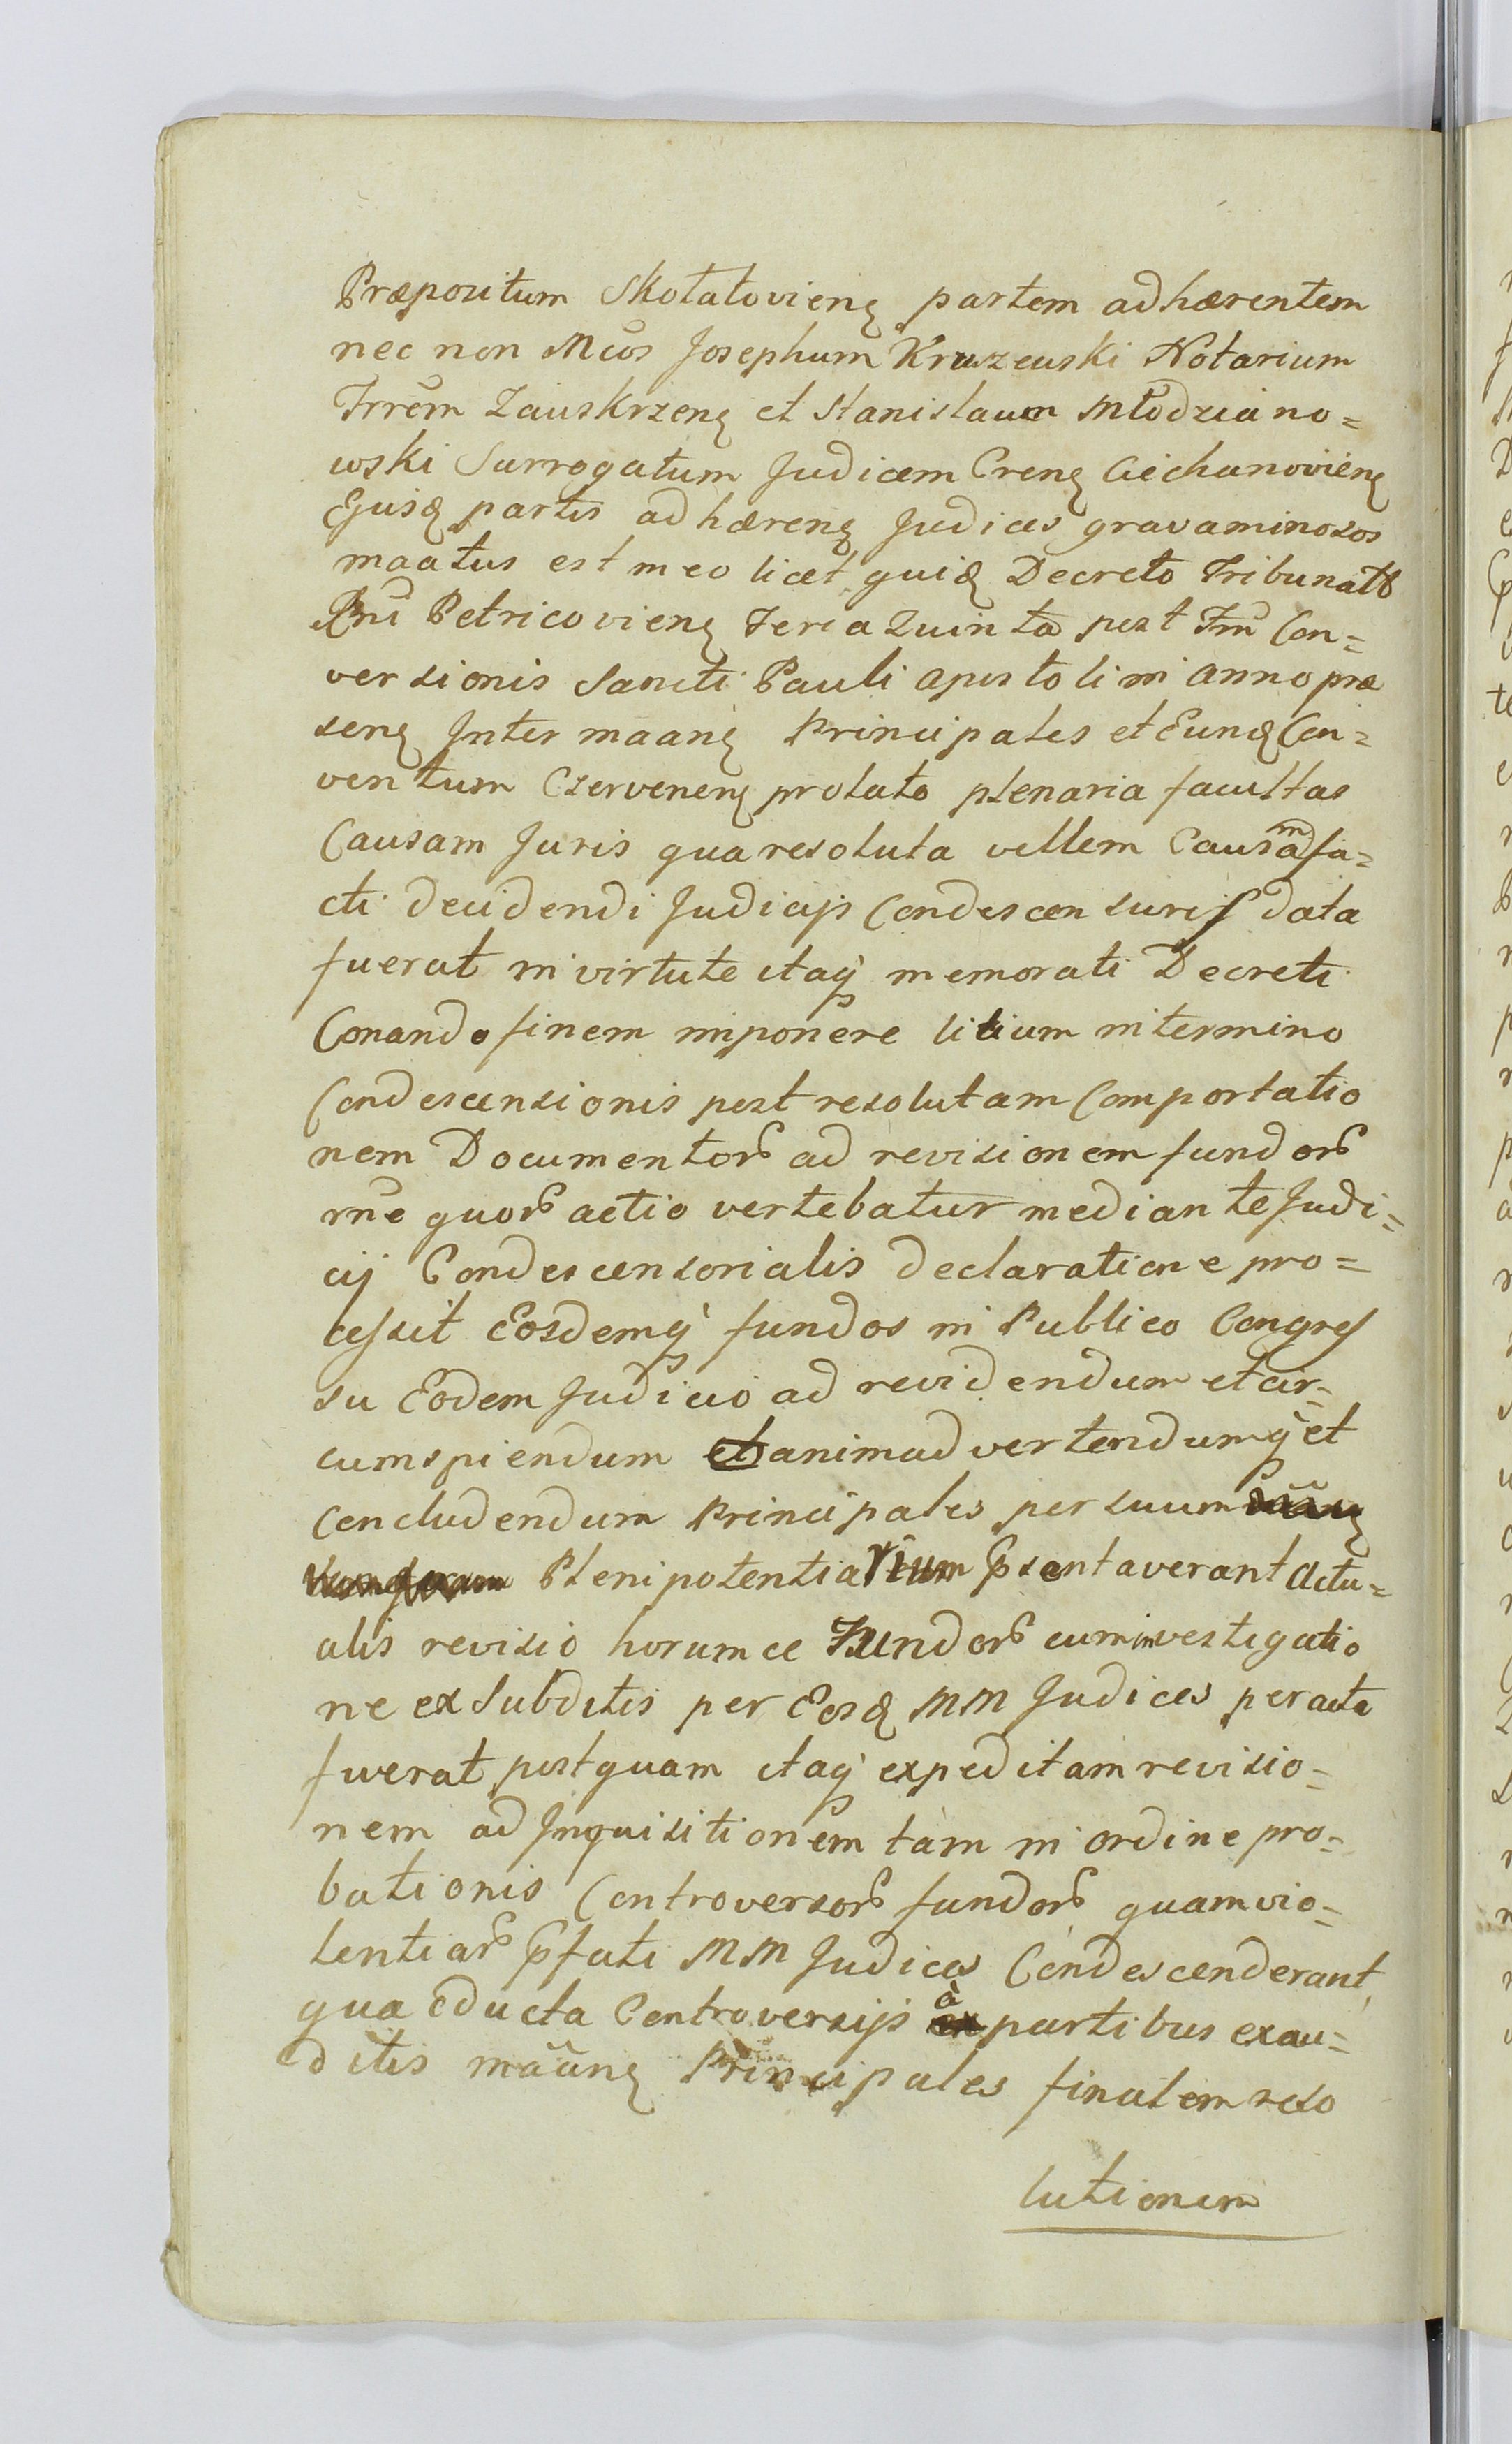 Præpositum Skołatovienę partem adhærentem
nec non Mcos Josephum Kraszewski Notarium
Trrem Zawskrzenę et Stanislaum Młodziano=
wski Surrogatum Judicem Crenę Ciechanovienę
Ejusdę partis adhærenę Judices gravaminosos
maatus est in eo licet quidę Decreto Tribunatt
Rni Petricovienę Feria Quinta post Ftm Con=
versionis Sancti Pauli apostoli in anno præ
senę Inter maanę Principales et Eundę Con=
ventum Czervenenę prolato plenaria facultas
Causam Juris qua resoluta vellem Causam fa=
cti decidendi Judicijs Condescensurijs data
fuerat in virtute itaq memorati Decreti
Conando finem imponere litium in termino
Condescensionis post resolutam Comportatio
nem Documentor ad revisionem fundor
rne quor actio vertebatur mediante Judi=
cij Condescensorialis declaratione pro=
cessit Eosdemq fundos in Publico Congres
su Eodem Judicio ad revidendum et cir=
cumspiendum et animadvertendumq et
concludendum Principales per suum
Plenipotentiarium psentaverant Actu=
alis revisio horumce Fundor cum investigatio
ne ex Subditis per Eosdę MM Judices peracta
fuerat postquam itaq expeditam revisio=
nem ad Inquisitionem tam in ordine pro=
bationis Controversor fundor quam vio=
lentiar pfati MM Judices Condescenderant,
qua educta Controversijs à partibus exau=
ditis maanę Principales finalem reso
lutionem